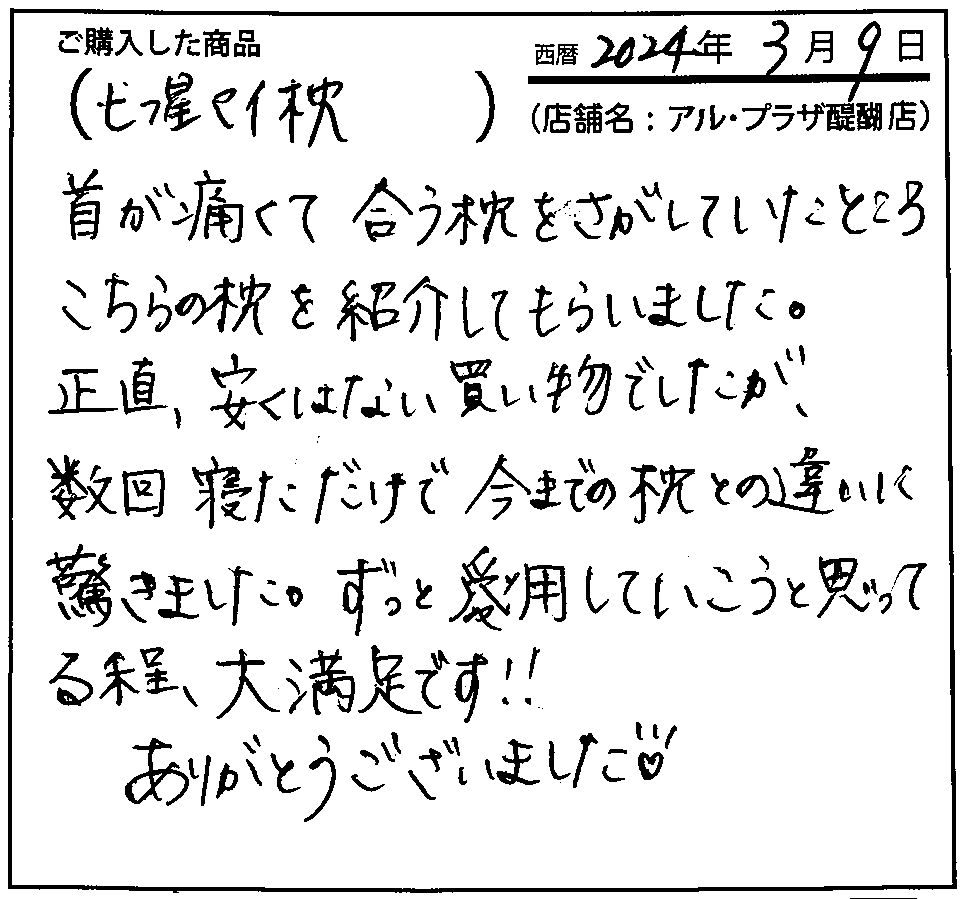 ご購入した商品
西暦 2024年 3月9日
(七つ星 枕 )
(店舗名：アル・プラザ醍醐店)
首が痛くて 合う枕をさがしていたところ
こちらの枕を紹介してもらいました。
正直、安くはない買い物でしたが、
数回寝ただけで今までの枕との違いに
驚きました。ずっと愛用していこうと思って
る程、大満足です!!
ありがとうございました♡